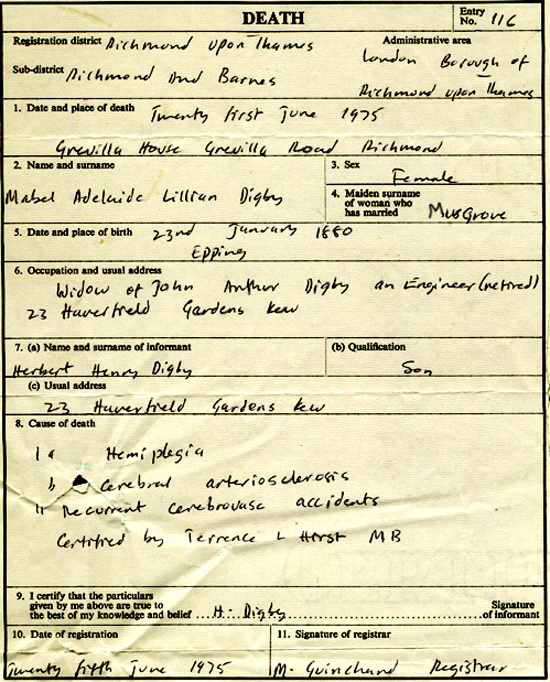 DEATH
Entry No. 116
Registration district Richmond upon Thames
Administrative area
Sub-district Richmond And Barnes
London Borough of
Richmond upon Thames
1. Date and place of death Twenty first June 1975
Grevilla House Grevilla Road Richmond
2. Name and surname
Mabel Adelaide Lillian Digby
3. Sex
Female
4. Maiden surname of woman who has married Musgrove
5. Date and place of birth 23nd January 1880
Epping
6. Occupation and usual address
Widow of John Arthur Digby an Engineer (retired)
23 Haverfield Gardens Kew
7. (a) Name and surname of informant
Herbert Henry Digby
(b) Qualification
Son
(c) Usual address
23 Haverfield Gardens Kew
8. Cause of death
1 a Hemiplegia
b Cerebral arteriosclerosis
11 Recurrent cerebrovasc accidents
Certified by Terrence L Hirst MB
9. I certify that the particulars
given by me above are true to
the best of my knowledge and belief H. Digby Signature of informant
10. Date of registration
Twenty fifth June 1975
11. Signature of registrar
M. Guinchard Registrar